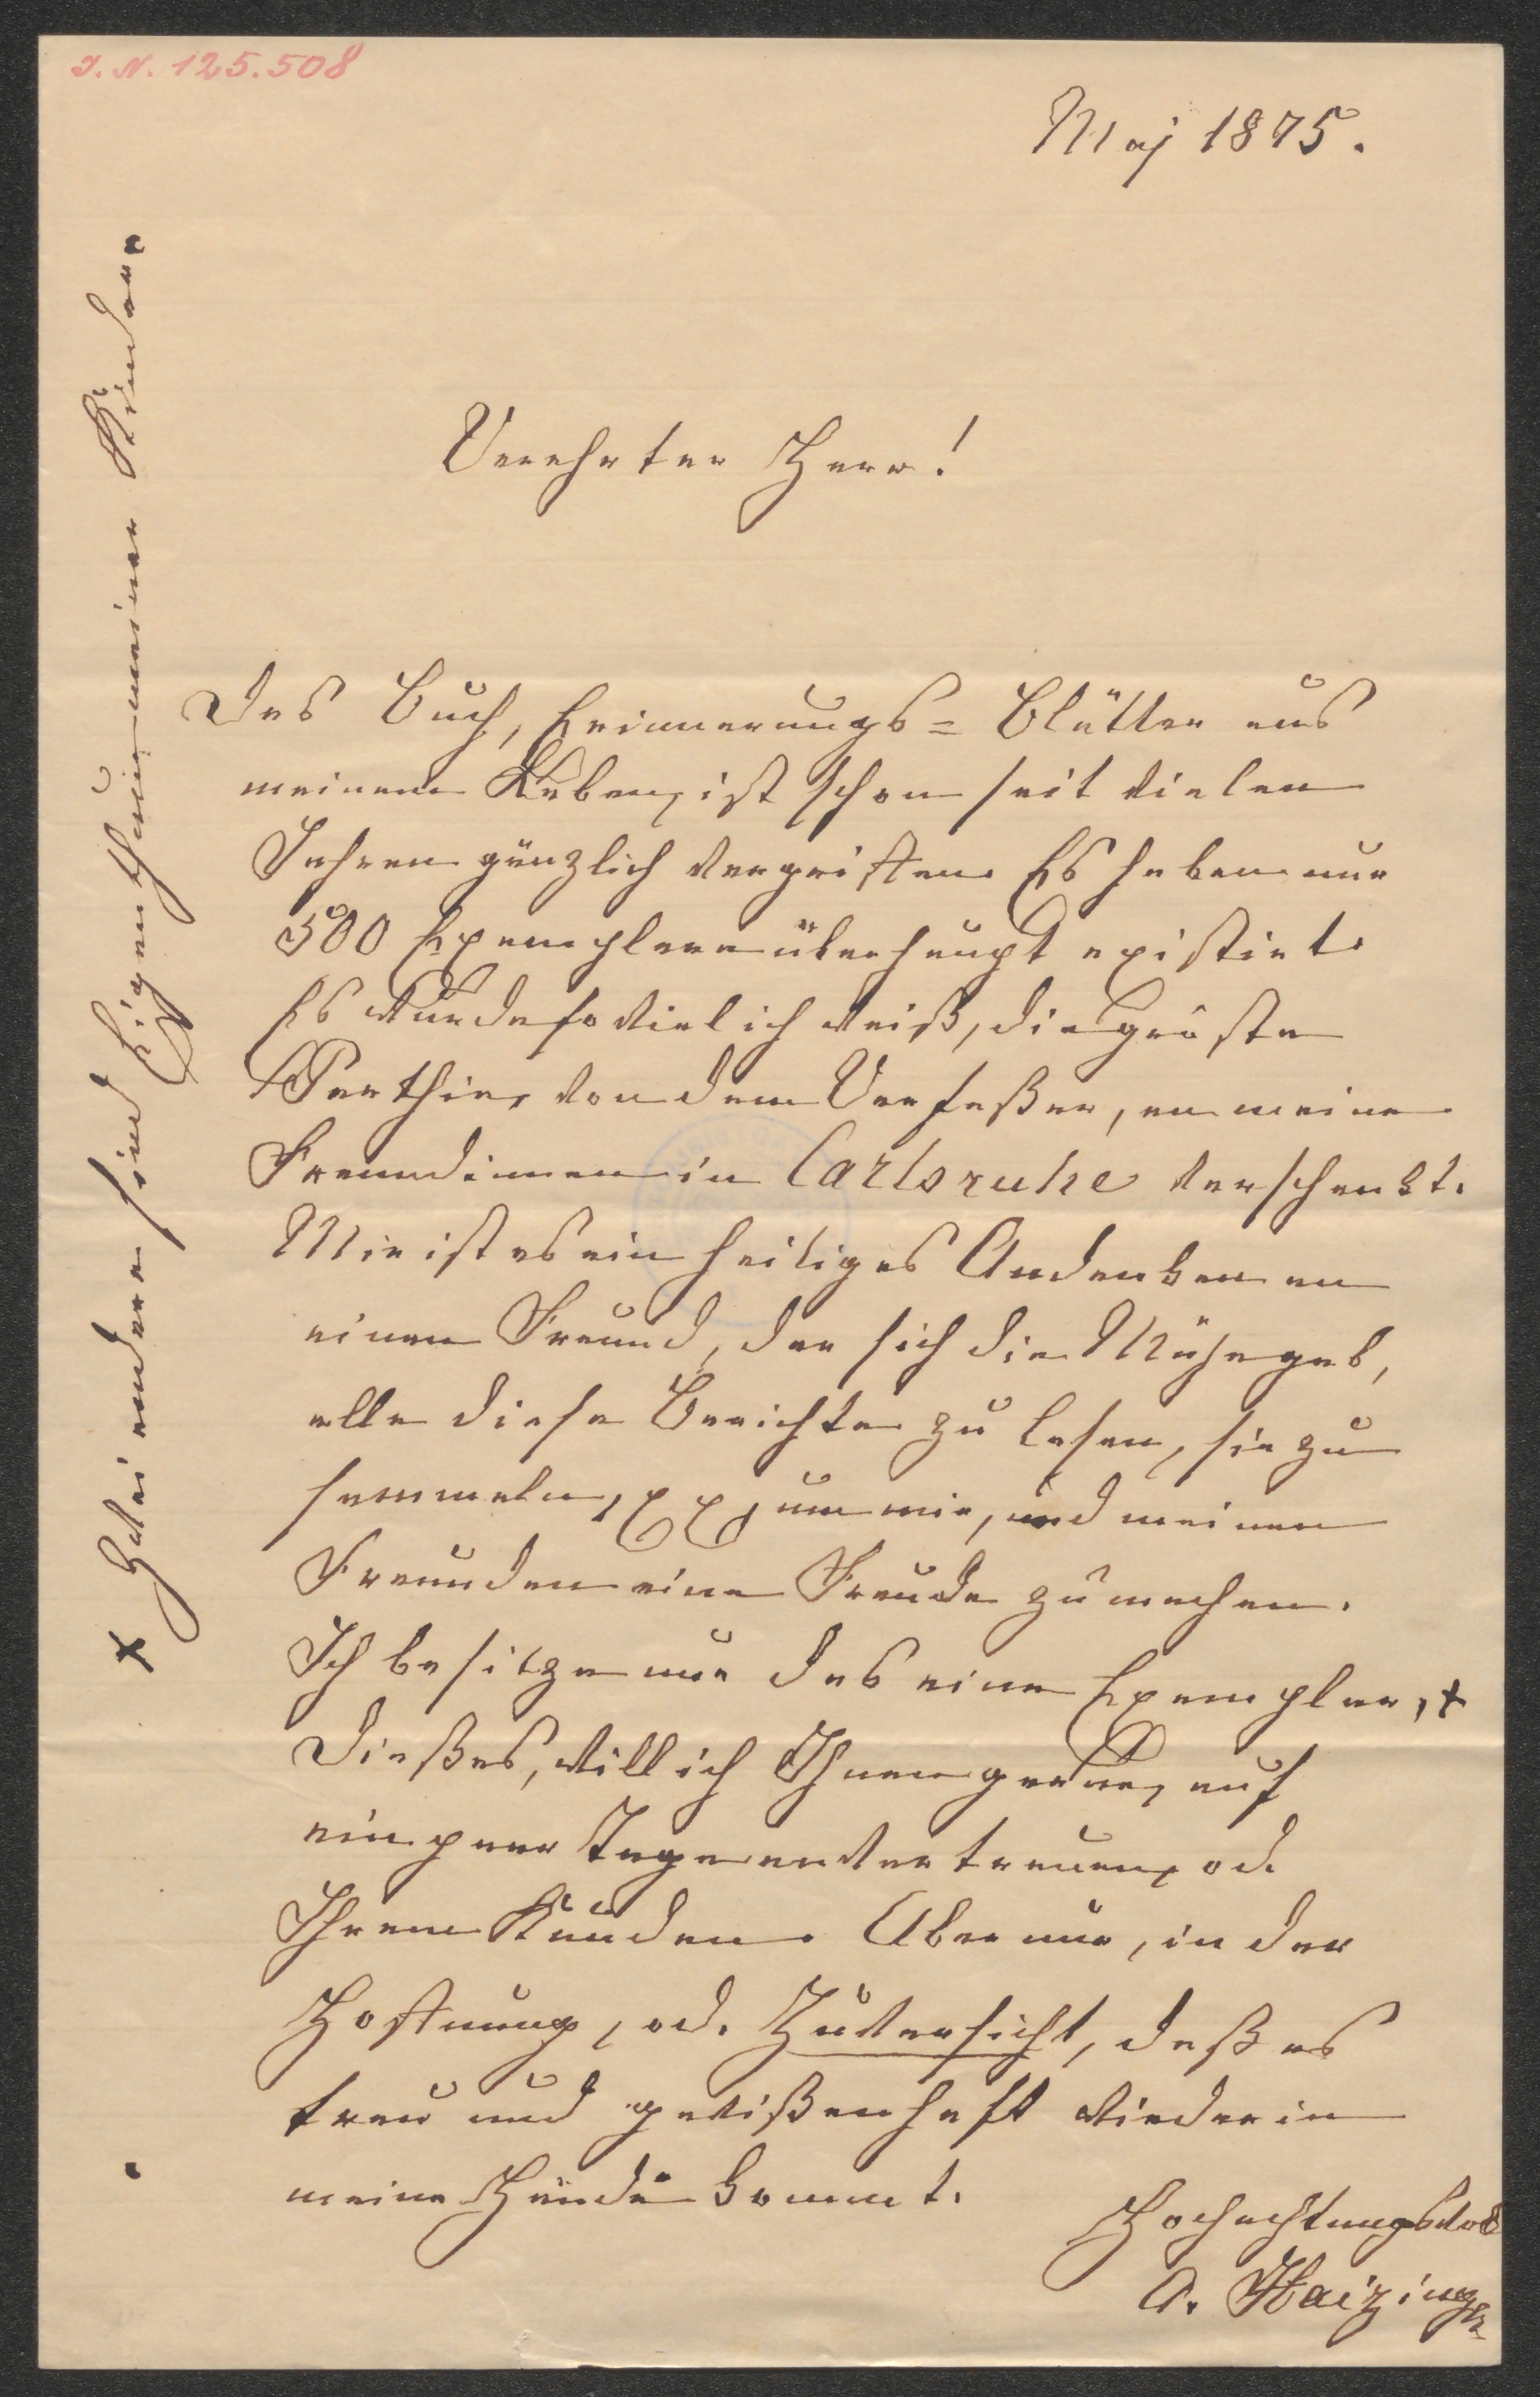 I. N. 125.508
Maj 1875.
Verehrter Herr!
Das Buch, Erinnerungs=Blätter aus
meinem Leben, ist schon seit vielen
Jahren gänzlich vergriffen. Es haben nur
500 Exemplare überhaupt existirt.
Es wurde so viel ich weiß, die gröste
Parthie, von dem Verfaßer, an meine
Freundinnen in Carlsruhe verschenkt.
Mir ist es ein heiliges Andenken an
einen Freund, der sich die Mühe gab,
alle diese Berichte zu lesen, sie zu
sammeln, um mir, und meinen
Freunden eine Freude zu machen.
Ich besitze nur das eine Exemplar, +
Dießes, will ich Ihnen gerne, auf
ein paar Tage anvertrauen, od.
Ihrem Kunden. Aber nur, in der
Hoffnung, od. Zuversicht, daß es
treu und gewißenhaft wieder in
meine Hände kommt.
Hochachtungsvoll
A. Haizinger
+ Zwei andere sind Eigenthum meiner Kinder.